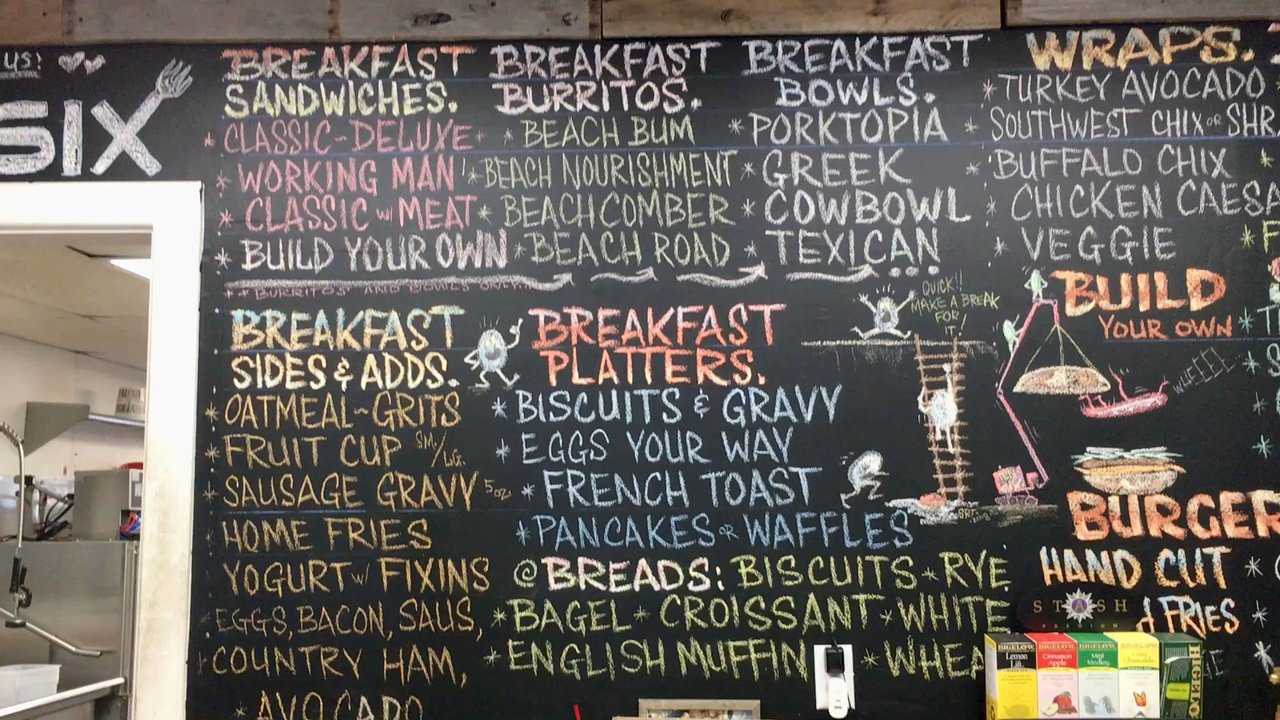 US!
SIX
BREAKFAST
SANDWICHES.
* CLASSIC-DELUXE *
* WORKING MAN
* CLASSIC W/ MEAT
* BUILD YOUR OWN
* * BURRITOS AND BOWLS ONLY
BREAKFAST
BURRITOS.
* BEACH BUM
* BEACH NOURISHMENT
* BEACHCOMBER
* BEACH ROAD
BREAKFAST
BOWLS.
* PORKTOPIA
* GREEK
* COWBOWL
* TEXICAN
WRAPS.
* TURKEY AVOCADO
* SOUTHWEST CHIX OR SHR
* BUFFALO CHIX
* CHICKEN CAESA
* VEGGIE
BREAKFAST
SIDES & ADDS.
* OATMEAL~GRITS
* FRUIT CUP SM/LG.
* SAUSAGE GRAVY 5oz
* HOME FRIES
YOGURT W/ FIXINS
EGGS, BACON, SAUS,
COUNTR
* AVOCADO
BREAKFAST
PLATTERS.
* BISCUITS & GRAVY
* EGGS YOUR WAY
* FRENCH TOAST
* PANCAKES OR WAFFLES
@BREADS: BISCUITS * RYE
* BAGEL * CROISSANT * WHITE
* ENGLISH MUFFIN * WHEA
QUICK!!
MAKE A BREAK
FOR
IT!
BUILD
YOUR OWN
WHEEEE
BURGER
HAND CUT
FRIES
STASH
PREMIUM
BIGELOW
Lemon
Lift
BIGELOW
Cinnamon
Apple
BIGELOW
Mint
Medley
BIGELOW
Cozy
Chamomile
BIGELOW